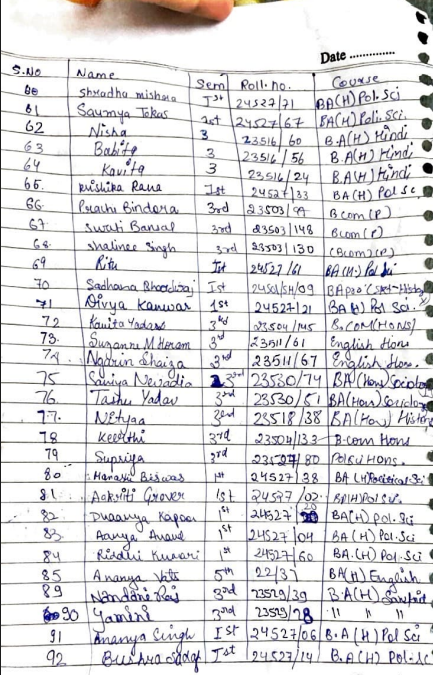 Date ..............
S.No Name Sem Roll.no. Course
60 Shradha mishra Ist 24527/71 BA(H) Pol.Sci
61 Saumya Tokas Ist 24527/67 BA(H) Poli.Sci.
62 Nisha 3 23516/60 B.A(H) Hindi
63 Babita 3 23516/56 B.A(H) Hindi
64 Kavita 3 23516/24 B.A(H) Hindi
65. Krishika Rana Ist 24527/33 BA(H) Pol Sc
66. Prachi Bindora 3rd 23503/99 B com (P)
67 Swati Bansal 3rd 23503/148 B com (P)
68. Shalinee Singh 3rd 23503/130 (Bcom)(P)
69 Ritu Ist 24527/61 BA(H) Pol Sci
70 Sadhana Ist 2450/SH/09
71 Divya Kanwar 1st 24527/21 BA(H) Pol Sci.
72 Kavita Yadav 3rd 23504/145 B.COM(HONS)
73. Suzanne M Horam 3rd 23511/61 English Hons
74. Ngarin Shaiza 3rd 23511/67 English Hons.
75 Saniya 3rd 23530/74 BA(Hons) Sociology
76. Tashu Yadav 3rd 23530/51 BA(Hons) Sociology
77. Nitya 3rd 23518/38 BA(Hons) History
78 Keerthi 3rd 23504/133 B.com Hons
79 Supriya 3rd 80 Hons.
80 Biswas 1st 24527/38 BA (H)Political.Sci
81. Aakriti Grover 1st 24527/02 BA(H)Pol Sci.
82 Kapoor 1st 24527/20 BA(H) Pol.Sci
83. Aanya Anand 1st 24527/04 BA(H) Pol.Sci
84 Kumari 1st 24527/60 BA.(H) Pol.Sci
85 Ananya Vats 5th 22/37 BA(H) English
89 Nandani Raj 3rd 23529/39 B.A(H) Sanskrit
90 Yamini 3rd 23529/28 " " "
91 Ananya Singh Ist 24527/06 B.A(H) Pol Sci
92 Bushra Sadaf Ist 24527/14 B.A(H) Pol.Sc